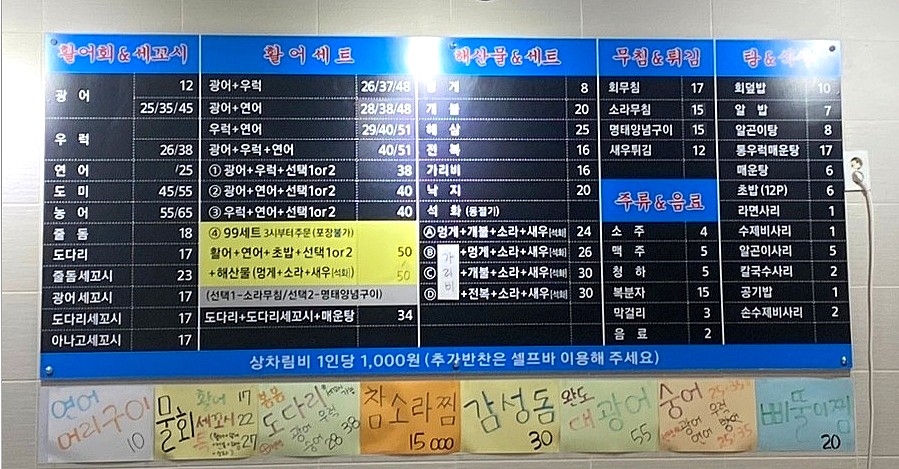 활어회&세꼬시
광 어 12
25/35/45
우 럭
26/38
연 어 /25
도 미 45/55
농 어 55/65
줄 돔 18
도다리 17
줄돔세꼬시 23
광어세꼬시 17
도다리세꼬시 17
아나고세꼬시 17
활 어 세 트
광어+우럭 26/37/48
광어+연어 28/38/48
우럭+연어 29/40/51
광어+우럭+연어 40/51
① 광어+우럭+선택1or2 38
② 광어+연어+선택1or2 40
③ 우럭+연어+선택1or2 40
④ 99세트 3시부터 주문 (포장불가)
활어+연어+초밥+선택1or2 50
+해산물 (멍게+소라+새우(석화)) 50
(선택1-소라무침/선택2-명태양념구이)
도다리+도다리세꼬시+매운탕 34
해산물&세트
게 8
개 불 20
해 삼 25
전 복 16
가리비 16
낙 지 20
석 화 (동절기)
Ⓐ 멍게+개불+소라+새우(석화) 24
Ⓑ +멍게+소라+새우(석화) 26
Ⓒ +개불+소라+새우(석화) 30
Ⓓ +전복+소라+새우(석화) 30
가리비
무침&튀김
회무침 17
소라무침 15
명태양념구이 15
새우튀김 12
주류&음료
소 주 4
맥 주 5
청 하 5
복분자 15
막걸리 3
음 료 2
탕&
회덮밥 10
알 밥 7
알곤이탕 8
통우럭매운탕 17
매운탕 6
초밥 (12P) 6
라면사리 1
수제비사리 1
알곤이사리 5
칼국수사리 2
공기밥 1
손수제비사리 2
상차림비 1인당 1,000원 (추가반찬은 셀프바 이용해 주세요)
연어
머리구이
10
물회
활어 17
세꼬시 22
특 27
봄봄
도다리
광어 우럭
광어 28 38
참소라찜
15000
감성돔
30
완도
대광어
55
숭어
광어 우럭
연어
25/35
삐뚤이찜
20